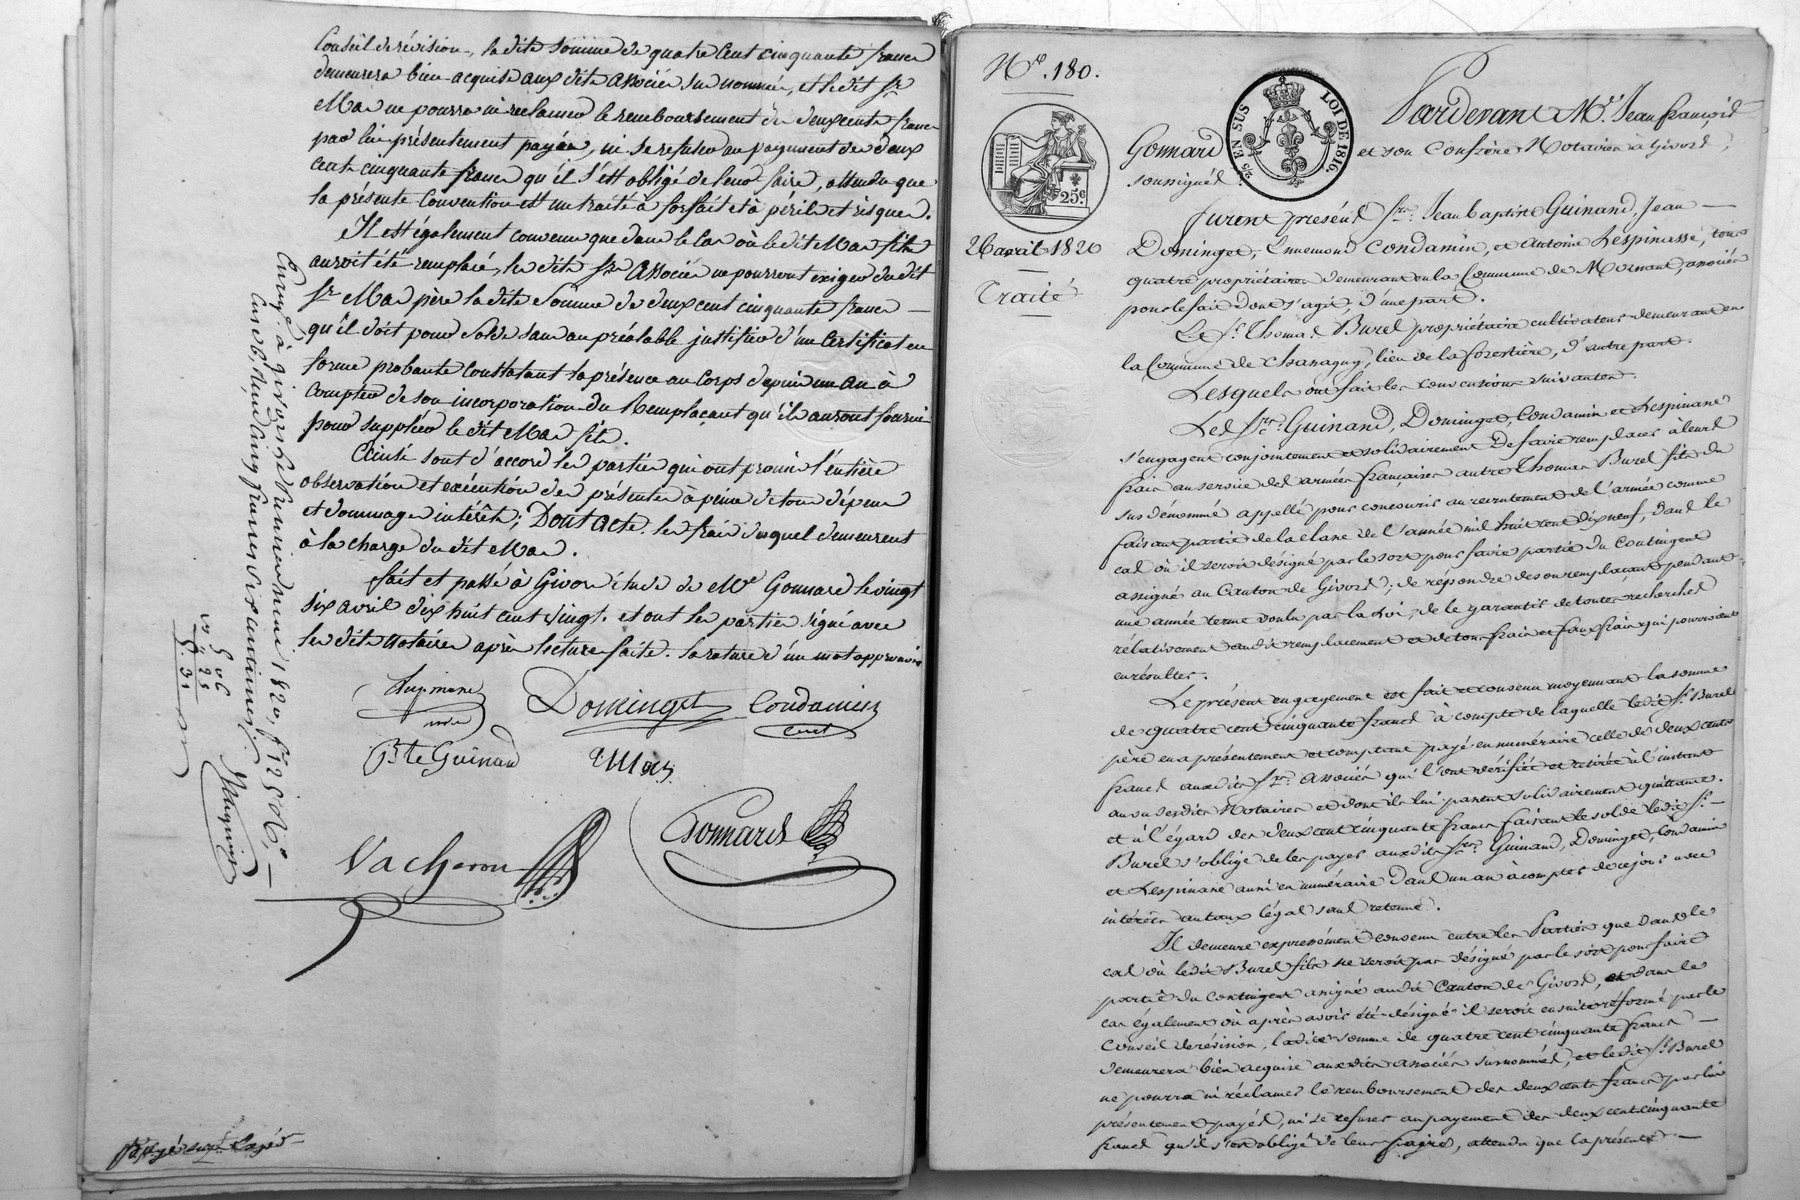 Conseil de révision, la dite somme de quatre cent cinquante francs
demeurera bien acquise aux dits associés sus nommés, et le dit Sr
Mas ne pourra ni reclamer le remboursement des deux cents francs
par lui présentement payés, ni se refuser au paiement des deux
cent cinquante francs qu'il s'est obligé de leur faire, attendu que
la présente convention est un traité à forfait et à péril et risques.
Il est également convenu que dans le cas où le dit Mas fils
auroit été remplacé, les dits Srs associés ne pourront exiger du dit
Sr Mas père la dite somme de deux cent cinquante francs
qu'il doit pour solde sans au préalable justifier d'un certificat en
forme probante constatant la présence au corps depuis un an à
compter de son incorporation du Remplaçant qu'ils auront fourni
pour suppléer le dit Mas fils.
Ainsi sont d'accord les parties qui ont promis l'entière
observation et exécution des présentes à peine de tous dépens
et dommages intérêts; Dont acte. les frais duquel demeurent
à la charge du dit Mas.
fait et passé à Givors étude de Me Gonnard le vingt
six avril dix huit cent vingt. et ont les parties signé avec
les dits notaires après lecture faite. la rature d'un mot approuvée
Lespinasse
Dominget
Condamin
Bte Guinand
Mas
Vacheron
Gonnard
Enregé à givors le 1820, fo 125 Ro
Reçu cinq francs dix centimes
No. 180.
25 EN SUS
LOI DE 1816.
25c
26 avril 1820
Traité
Pardevant Me. Jean françois
Gonnard et son Confrère Notaires à Givors,
soussignés.
Furent présens Srs. Jean baptiste Guinand, Jean
Dominget, Ennemond Condamin, et Antoine Lespinasse, tous
quatre propriétaires demeurant en la Commune de Mornant, associés
pour le fait dont s'agit, d'une part.
Et Sr. Thomas Burel propriétaire cultivateur demeurant en
la Commune de Chassagny, lieu de la forestière, d'autre part.
Lesquels ont fait les conventions suivantes.
Les Srs. Guinand, Dominget, Condamin et Lespinasse
s'engagent conjointement et solidairement de faire remplacer à leurs
frais au service des armées françaises autre Thomas Burel fils du
sus dénommé appellé pour concourir au recrutement de l'armée comme
faisant partie de la classe de l'année mil huit cent dix neuf, dans le
cas où il seroit désigné par le sort pour faire partie du Contingent
assigné au Canton de Givors; de répondre de son remplaçant pendant
une année terme voulu par la Loi, de le garantir de toutes recherches
rélativement audit remplacement et de tous frais et faux frais qui pourroient
en résulter.
Le présent engagement est fait et consenu moyennant la somme
de quatre cent cinquante francs à compte de laquelle ledit Sr. Burel
père en a présentement et comptant payé en numéraire celle de deux cents
francs auxdits Srs. associés qui l'ont vérifiée et retirée à l'instant
au vu desdits Notaires et dont ils lui passent solidairement quittance.
et à l'égard des deux cent cinquante francs faisant le solde ledit Sr.
Burel s'oblige de les payer auxdits Srs. Guinand, Dominget, Condamin
et Lespinasse aussi en numéraire dans un an à compter de ce jour avec
intérêts au taux légal sans retenue.
Il demeure expressément convenu entre les Parties que dans le
cas où ledit Burel fils ne seroit pas désigné par le sort pour faire
partie du contingent assigné audit Canton de Givors, et dans le
cas également où après avoir été désigné il seroit ensuite réformé par le
Conseil de révision, ladite somme de quatre cent cinquante francs
demeurera bien acquise auxdits associés susnommés, et ledit Sr. Burel
ne pourra ni réclamer le remboursement des deux cents francs par lui
présentement payés, ni se refuser au payement des deux cent cinquante
francs qu'il s'est obligé de leur faire, attendu que la présente